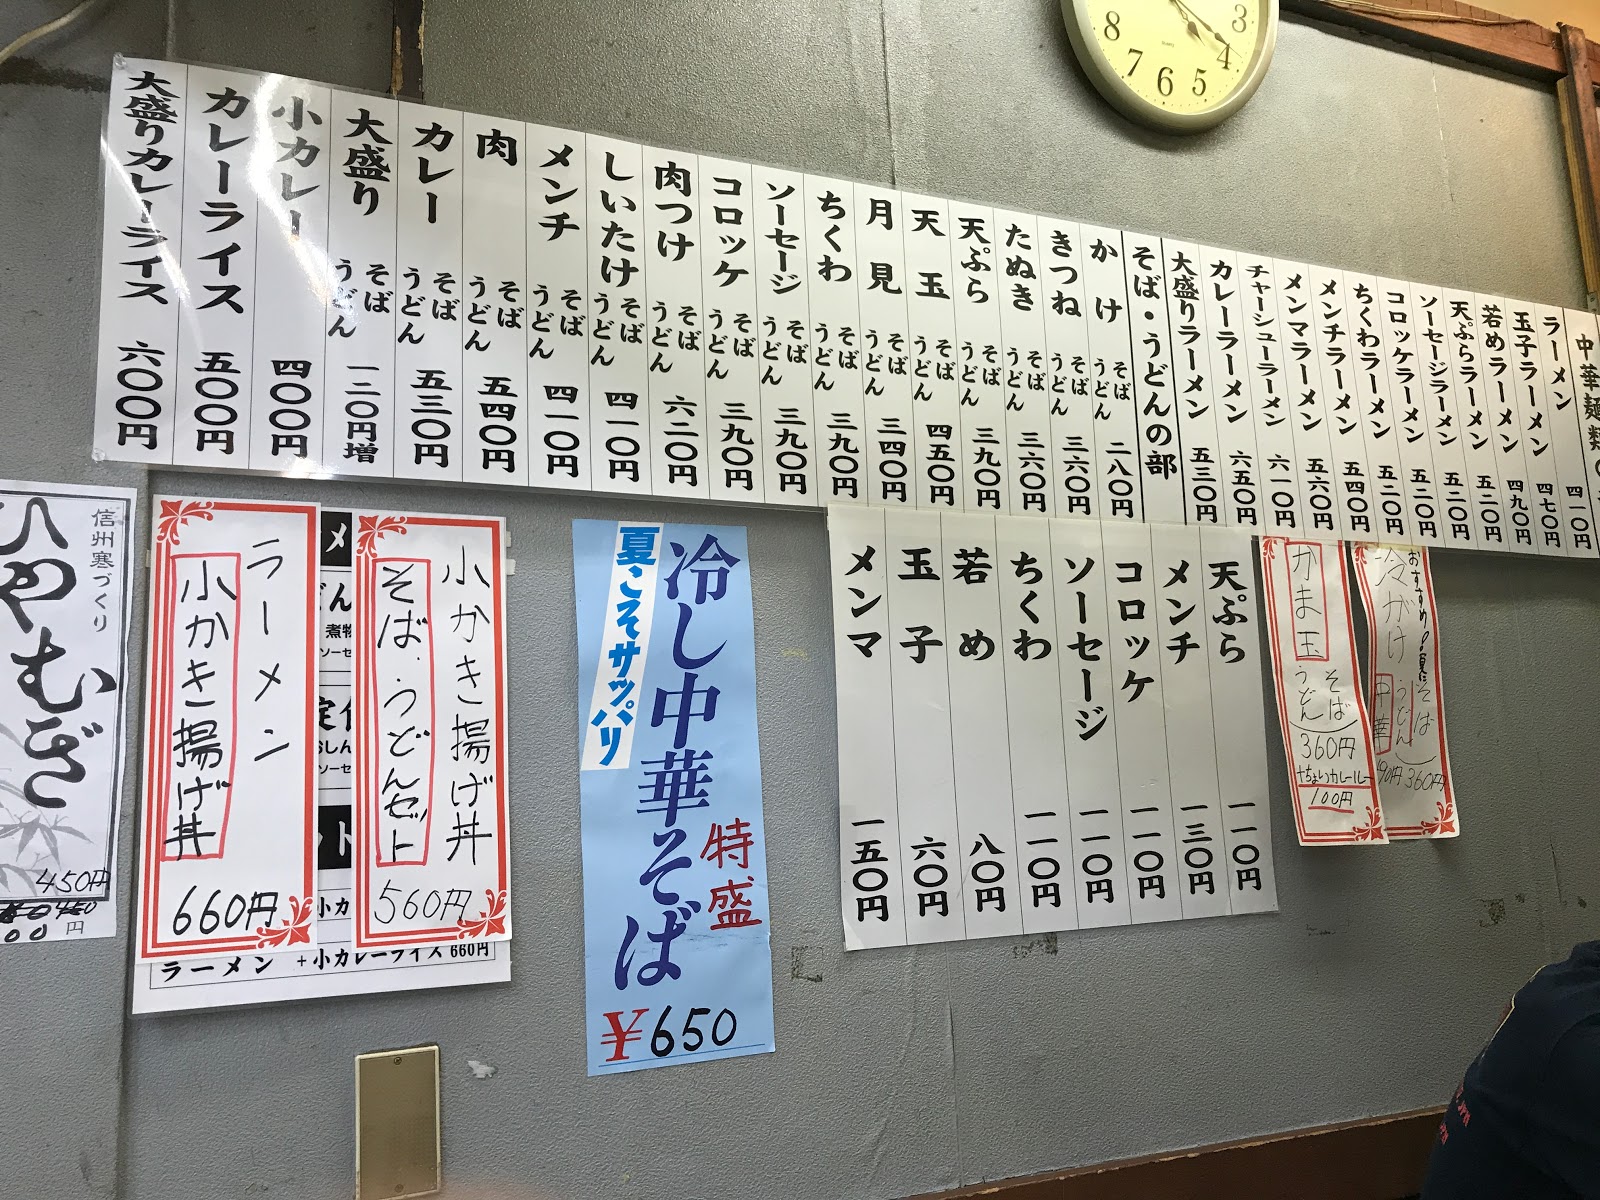 中華麺類の
ラーメン 四一〇円
玉子ラーメン 四七〇円
若めラーメン 四九〇円
天ぷらラーメン 五二〇円
ソーセージラーメン 五二〇円
コロッケラーメン 五二〇円
ちくわラーメン 五二〇円
メンチラーメン 五四〇円
メンマラーメン 五六〇円
チャーシューラーメン 六一〇円
カレーラーメン 六五〇円
大盛りラーメン 五三〇円
そば・うどんの部
かけ そば うどん 二八〇円
きつね そば うどん 三六〇円
たぬき そば うどん 三六〇円
天ぷら そば うどん 三九〇円
天玉 そば うどん 四五〇円
月見 そば うどん 三四〇円
ちくわ そば うどん 三九〇円
ソーセージ そば うどん 三九〇円
コロッケ そば うどん 三九〇円
肉つけ そば うどん 六二〇円
しいたけ そば うどん 四一〇円
メンチ そば うどん 四一〇円
肉 そば うどん 五四〇円
カレー そば うどん 五三〇円
大盛り そば うどん 一二〇円増
小カレー 四〇〇円
カレーライス 五〇〇円
大盛りカレーライス 六〇〇円
3
4
5
6
7
8
おすすめ
冷がけ
そば
うどん
360円
中華
かま玉
そば
うどん
360円
+ちょいカレールー
100円
天ぷら 一一〇円
メンチ 一三〇円
コロッケ 一一〇円
ソーセージ 一一〇円
ちくわ 一一〇円
若め 八〇円
玉子 六〇円
メンマ 一五〇円
冷し中華そば
夏こそサッパリ
特盛
￥650
小かき揚げ丼
そば・うどんセット
560円
ラーメン
小かき揚げ丼
660円
ラーメン +小カレーライス 660円
信州寒づくり
ひやむぎ
450円